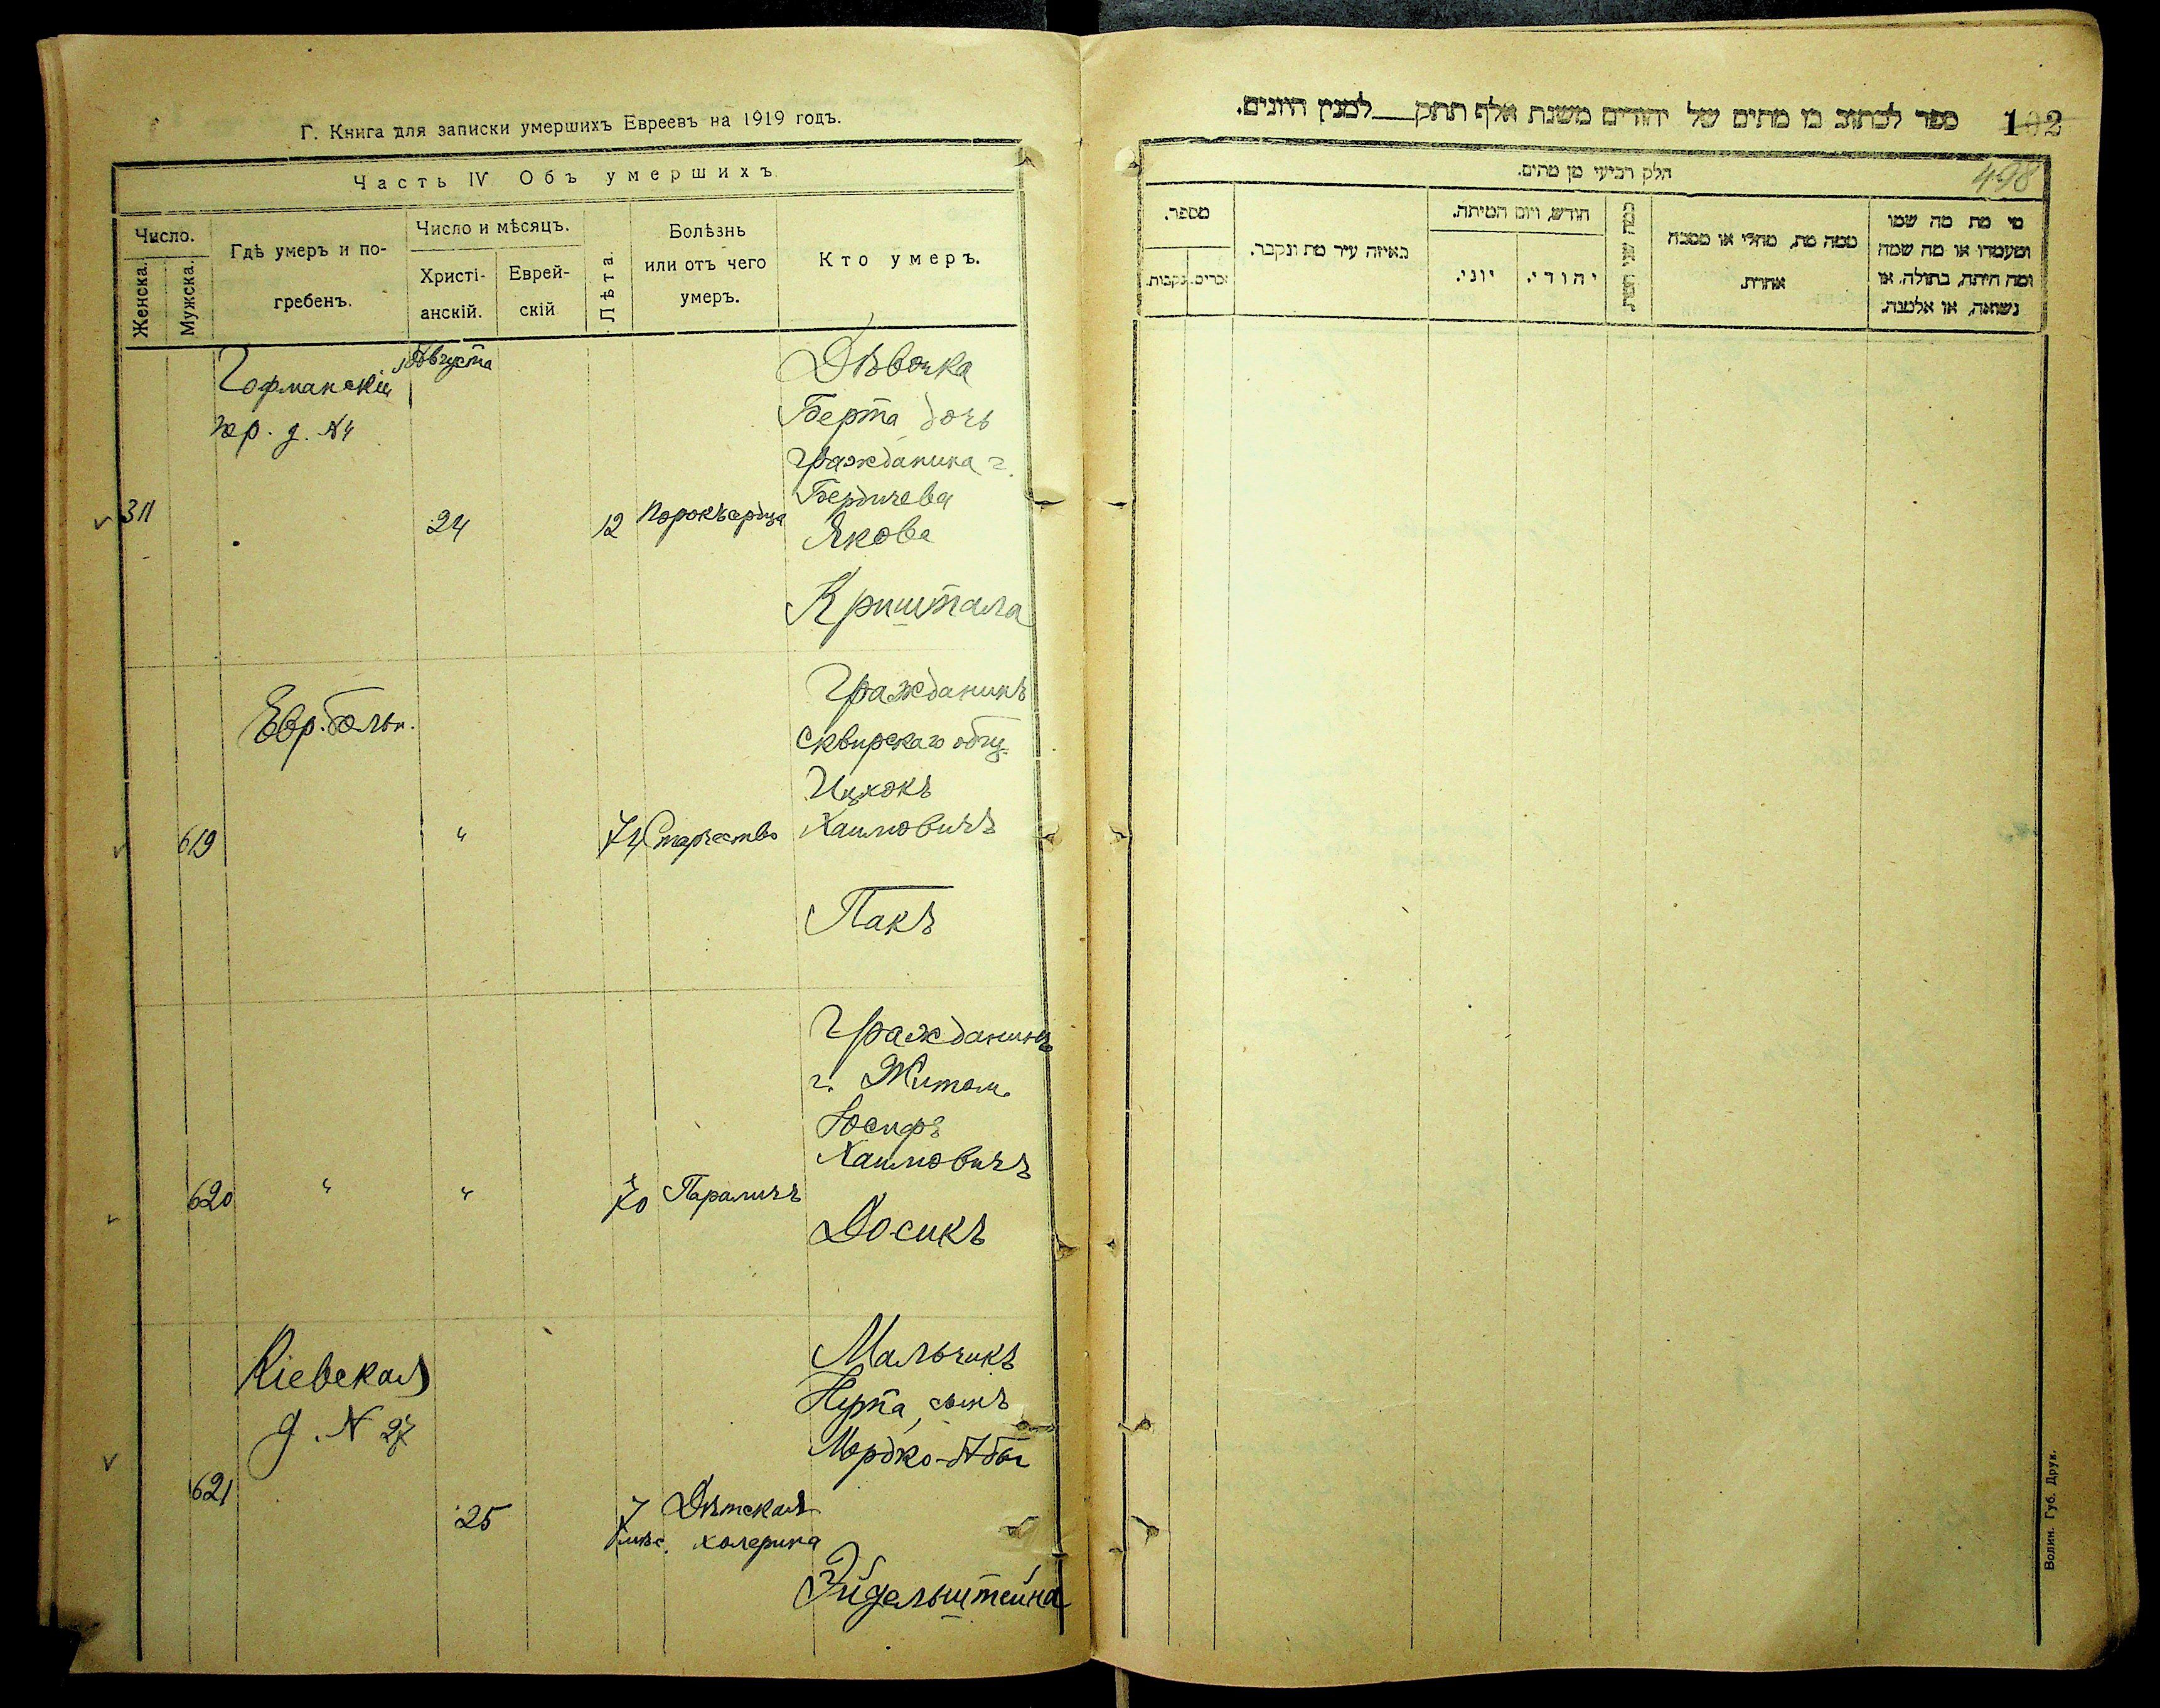 Г. Книга для записки умершихъ Евреевъ на 1919 годъ.
Часть IV Объ умершихъ
Число.
Женска.
Мужска.
Гдѣ умеръ и по-
гребенъ.
Число и мѣсяцъ.
Христі-
анскій.
Еврей-
скій
Лѣта
Болѣзнь
или отъ чего
умеръ.
Кто умеръ.
311
Гофманскій
пер. д. №4
Августа
24
12
Порокъ сердца
Дѣвочка
Берта дочь
Гражданина г.
Бердичева
Якова
Криштала
619
Евр. больн.
"
74
Старчество
Гражданинъ
Сквирскаго общ.
Ицхокъ
Хаимовичъ
Пакъ
620
"
"
70
Параличъ
Гражданинъ
г. Житом.
Іосифъ
Хаимовичъ
Досикъ
621
Кіевская
д. № 27
25
7
мѣс.
Дѣтская
холерина
Мальчикъ
Нута, сынъ
Мордко-Абы
Эйдельштейна
ספר לכתוב מו מתים של יהודים משנת אלף תתק __ למנין היונים.
102
498
חלק רביעי מן מתים.
מספר.
זכרים.
נקבות.
באיזה עיר מת ונקבר.
חודש, ויום המיתה.
יוני.
יהודי.
כמה שני המת.
ממה מת, מחלי או מסבה
אחרת.
מי מת מה שמו
ומעמדו או מה שמה
ומה היתה, בתולה, או
נשואה, או אלמנה.
Волин. Губ. Друк.